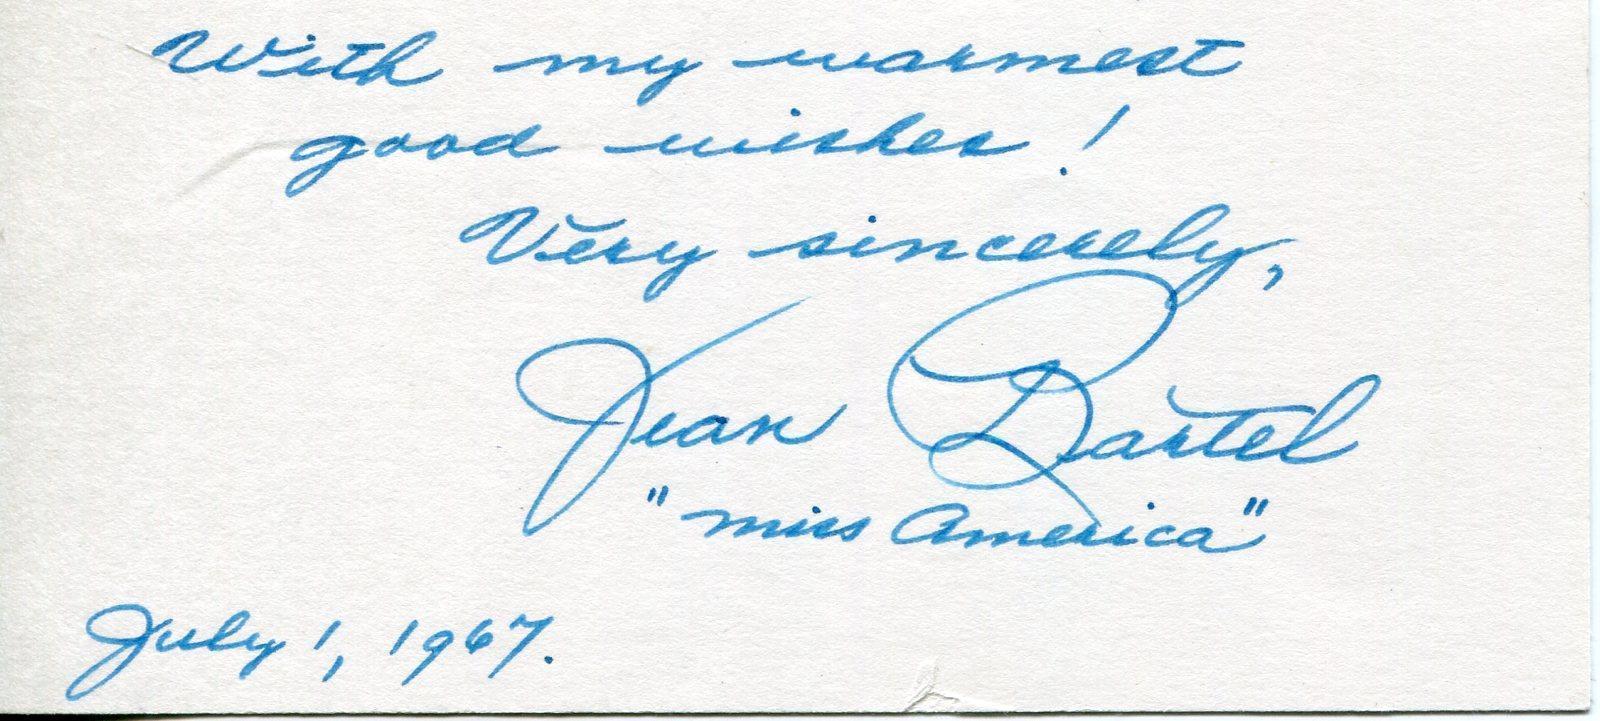 With my warmest
good wishes!
Very sincerely,
Jean Bartel
"Miss America"
July 1, 1967.